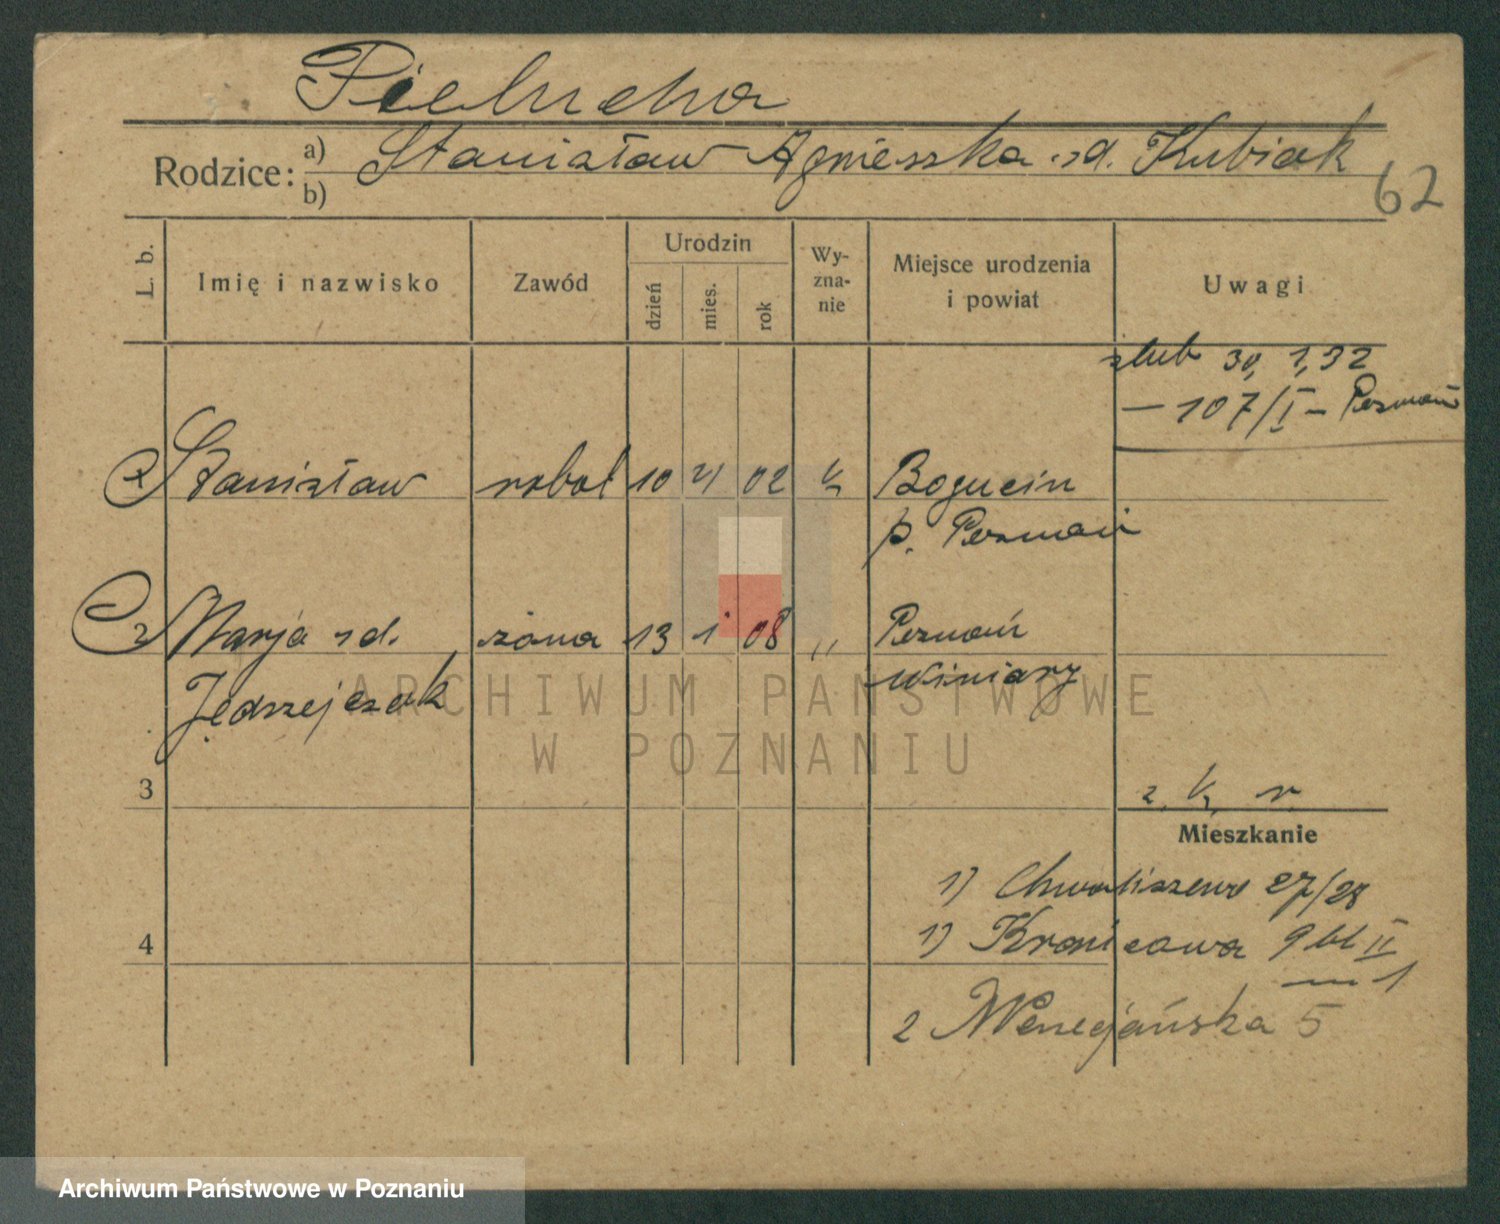 Pielucha
Rodzice: a) Stanisław Agnieszka zd. Kubiak
b)
62
L. b.
Imię i nazwisko
Zawód
Urodzin
dzień
mies.
rok
Wy-
zna-
nie
Miejsce urodzenia
i powiat
Uwagi
ślub 30, 1, 32
— 107/I – Poznań
1 Stanisław robot 10 02 k Bogucin
p. Poznań
2 Marja zd. żona 13 1 08 " Poznań
Jędrzejczak Winiary
3
z. k. r.
Mieszkanie
1) Chwaliszewo 27/28
4
1) Kronicowa 9 bl II
m 1
2 Wenecjańska 5
ARCHIWUM PAŃSTWOWE
W POZNANIU
Archiwum Państwowe w Poznaniu